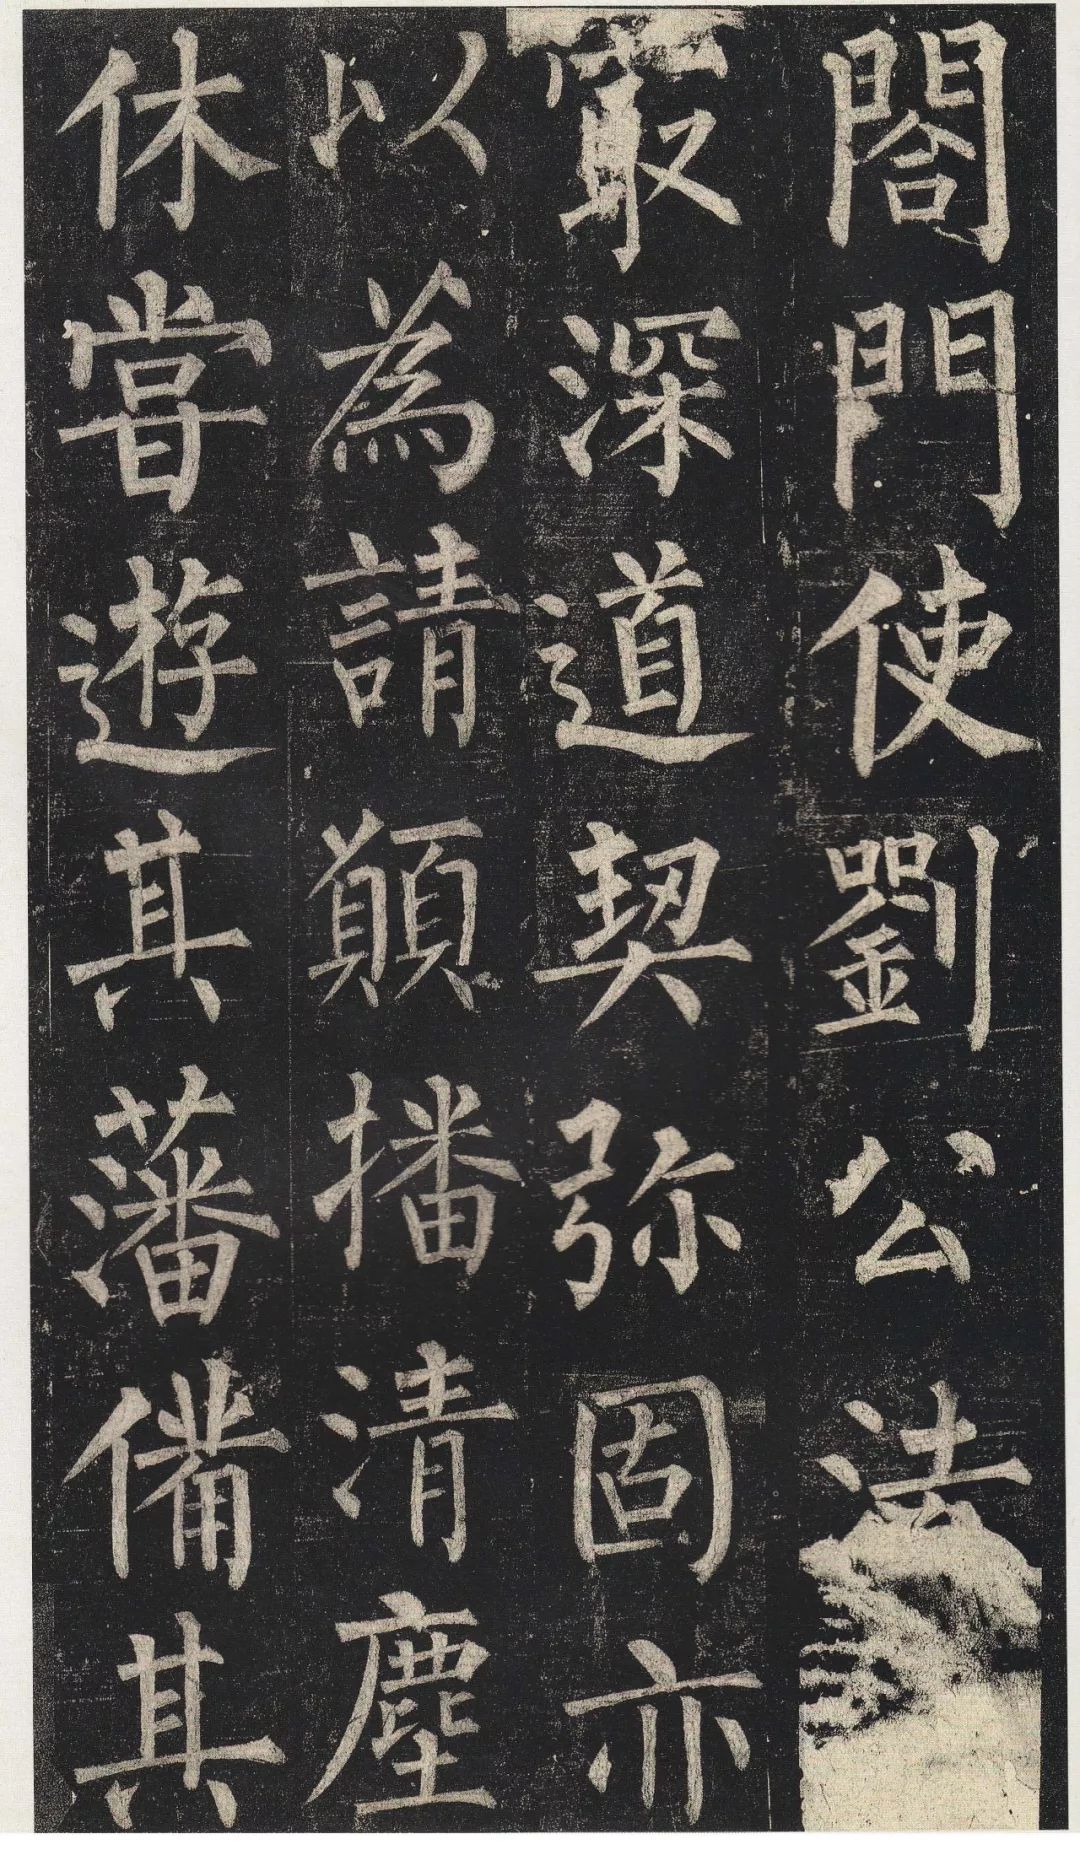 閤門使劉公法
㝡深道契弥固亦
以為請願播清塵
休嘗遊其藩備其